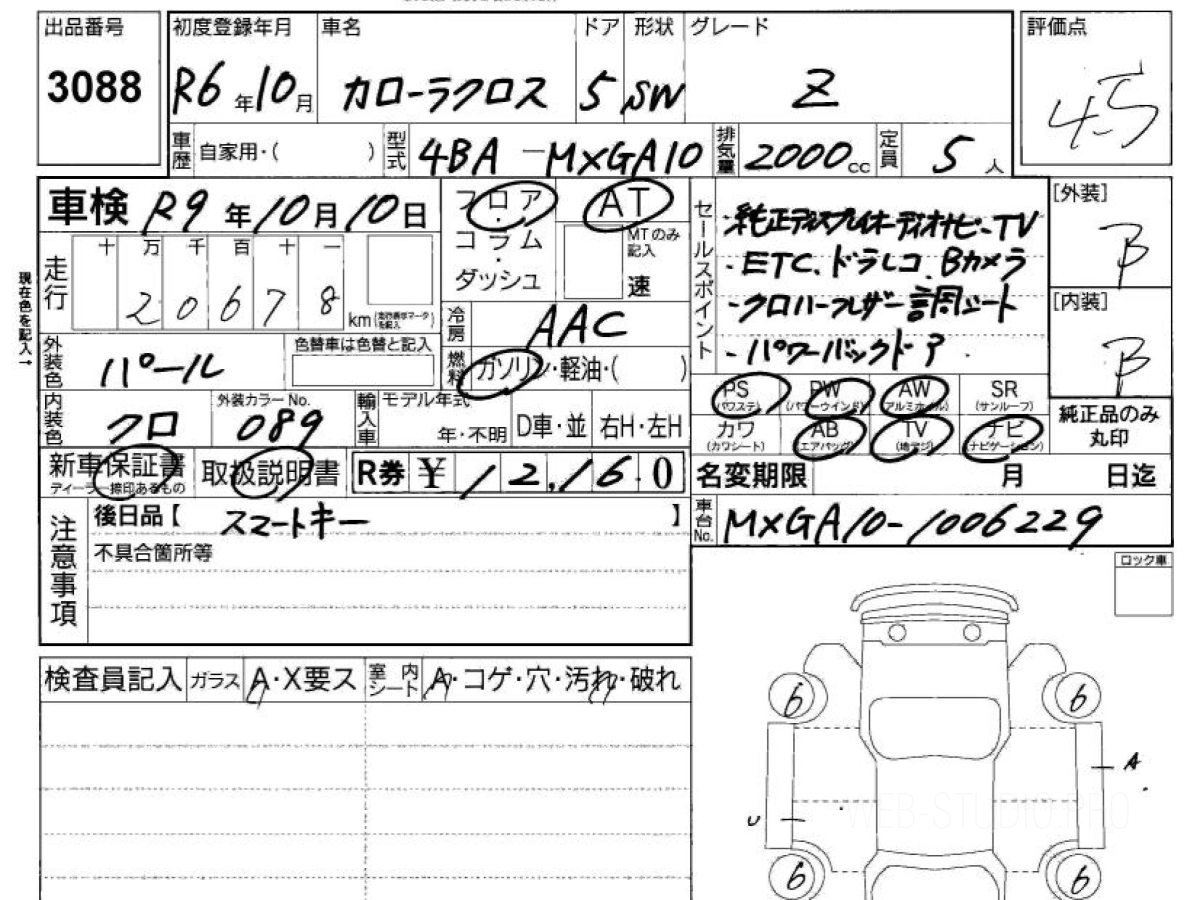 出品番号
3088
初度登録年月 車名 ドア 形状 グレード
R6年10月 カローラクロス 5 SW Z
評価点
4.5
車歴 自家用・( ) 型式 4BA-MXGA10 排気量 2000cc 定員 5人
車検 R9年10月10日
走行 十 万 千 百 十 一
20678 km
現在色を記入→
フロア・コラム・ダッシュ
AT
MTのみ記入
速
冷房 AAC
外装色 パール
色替車は色替と記入
燃料 ガソリン・軽油・( )
内装色 クロ
外装カラーNo. 089
輸入車 モデル年式 年・不明 D車・並 右H・左H
セールスポイント
・純正ディスプレイオーディオナビ-TV
・ETC、ドラレコ、Bカメラ
・クロハーフレザー調シート
・パワーバックドア
[外装]
B
[内装]
B
PS (パワステ) PW (パワーウインド) AW (アルミホイル) SR (サンルーフ)
カワ (カワシート) AB (エアバッグ) TV (地デジ) ナビ (ナビゲーション)
純正品のみ丸印
新車保証書 ディーラー捺印あるもの 取扱説明書 R券 ¥12,160
名変期限 月 日迄
車台No. MXGA10-1006229
注意事項
後日品【 スマートキー 】
不具合箇所等
ロック車
検査員記入 ガラス A・X要ス 室内シート A・コゲ・穴・汚れ・破れ
6 6
A
U
WEB-STUDIO.PRO
6 6